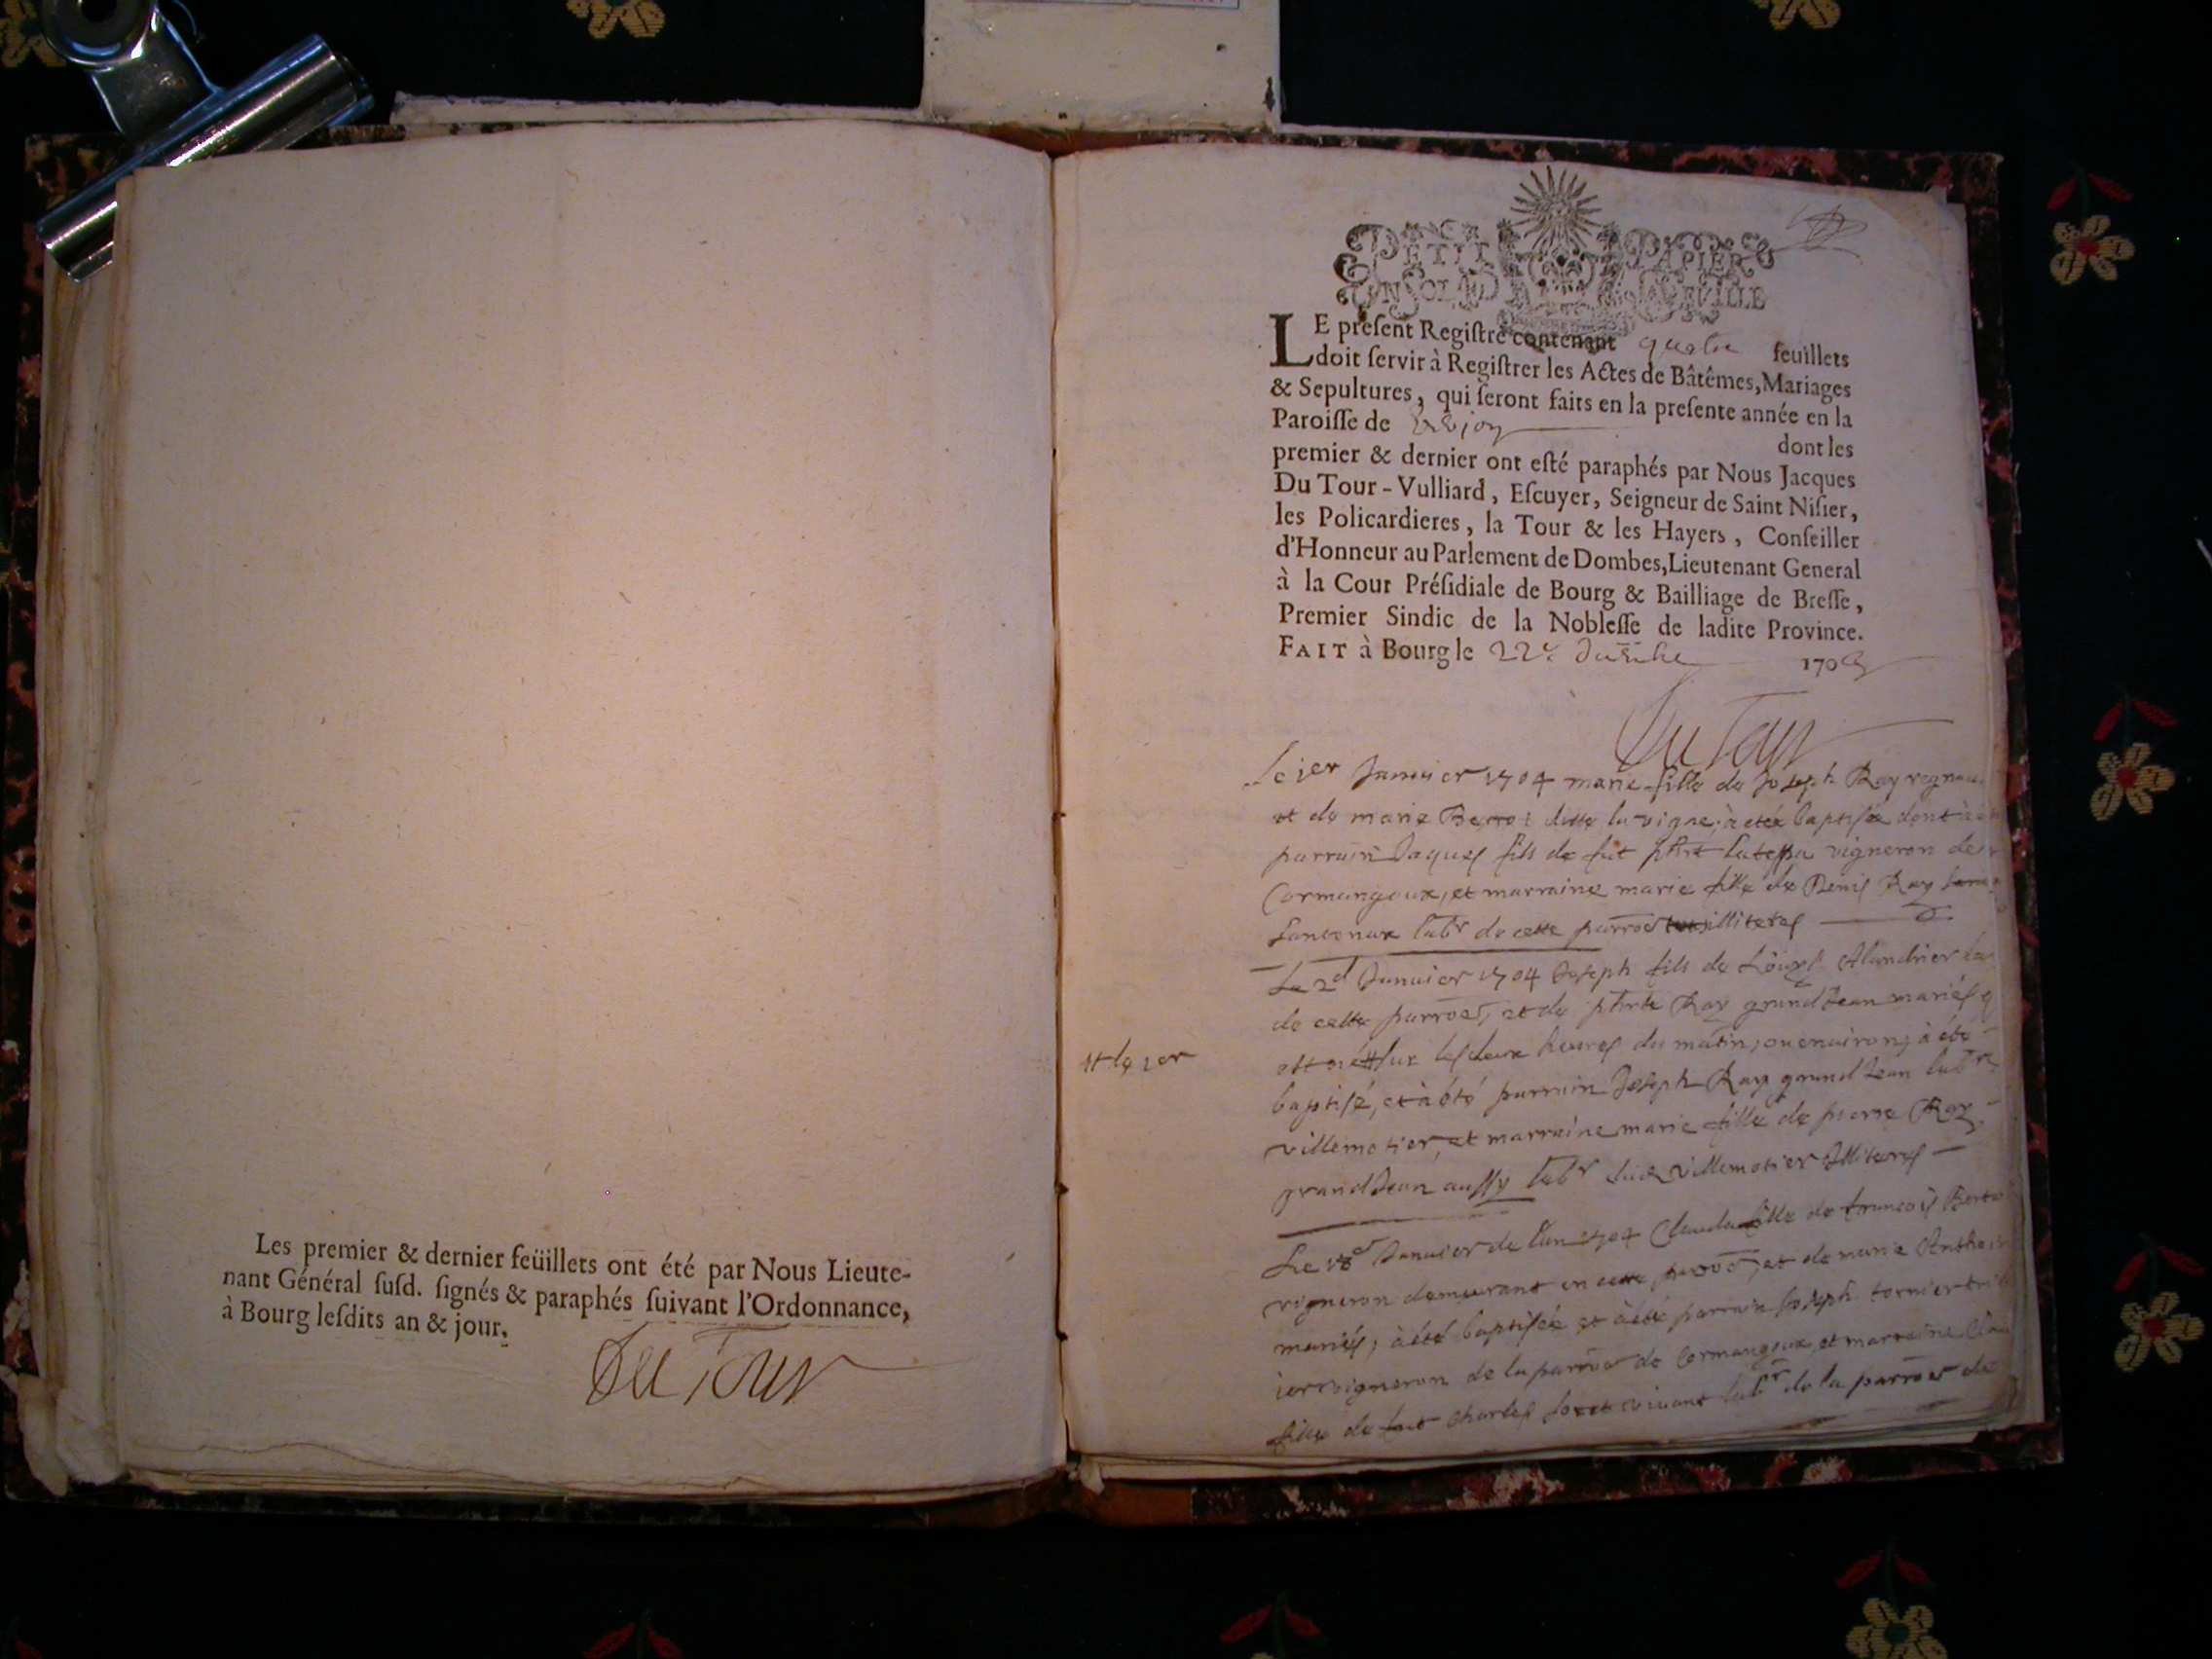 Les premier & dernier feüillets ont été par Nous Lieute-
nant Général ſuſd. ſignés & paraphés ſuivant l'Ordonnance,
à Bourg leſdits an & jour.
Du Tour
PETIT PAPIER
UN SOL LA FEVILLE
LE preſent Regiſtre contenant quatre feuillets
doit ſervir à Regiſtrer les Actes de Bâtêmes, Mariages
& Sepultures, qui ſeront faits en la preſente année en la
Paroiſſe de dont les
premier & dernier ont eſté paraphés par Nous Jacques
Du Tour-Vulliard, Eſcuyer, Seigneur de Saint Niſier,
les Policardieres, la Tour & les Hayers, Conſeiller
d'Honneur au Parlement de Dombes, Lieutenant General
à la Cour Préſidiale de Bourg & Bailliage de Breſſe,
Premier Sindic de la Nobleſſe de ladite Province.
FAIT à Bourg le 22e 170
Du Tour
le jer Januier 1704 marie fille de Joseph Ray
et de marie ditte la vigne, à etée baptisée dont à
parrain Jaques fils de fut vigneron de
Cormangoux, et marraine marie fille de Denis Ray
labr de cette parroe illiteres
Le 2d Januier 1704 Joseph fils de Louys Alandrier
de cette parroe, et de Ray grand Jean mariés
est né sur les deux heures du matin, ou enuiron, à été
baptisé, et à été parrain Joseph Ray grand Jean labr
villemotier, et marraine marie fille de pierre Ray
grand Jean aussy labr villemotier Illiteres
Le 18e Januier de l'an 1704 Clauda fille de francois
vigneron demeurant en cette parroe, et de marie
mariés, à été baptisée et à été parrain Joseph
vigneron de la parroe de Cormangoux, et marraine
fille de fut Charles viuant labr de la parroe de